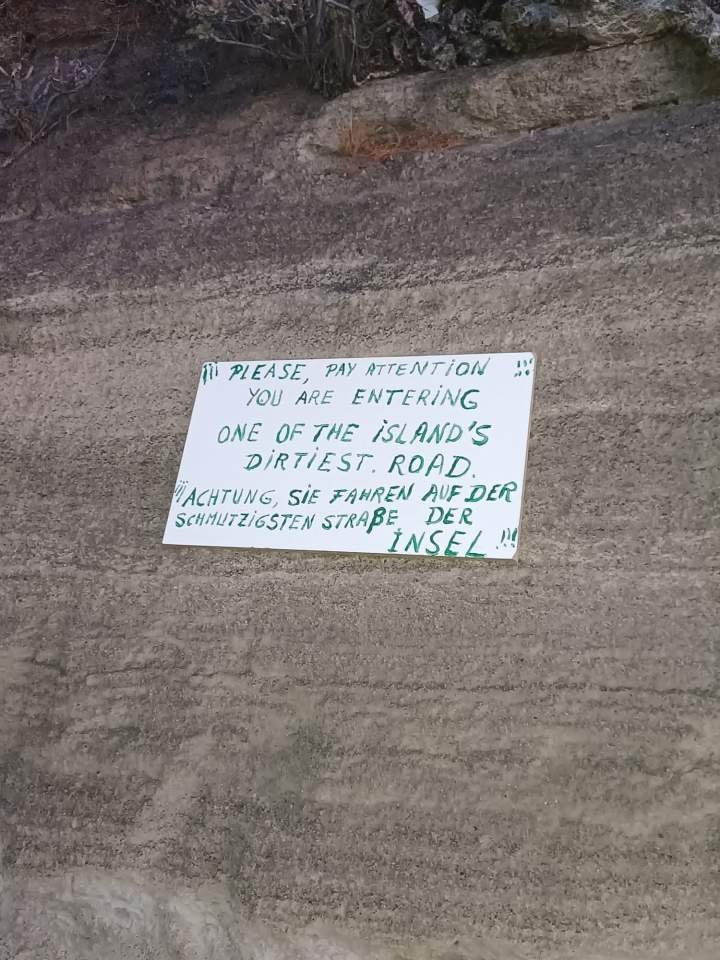 ¡¡¡ PLEASE, PAY ATTENTION !!!
YOU ARE ENTERING
ONE OF THE ISLAND'S
DIRTIEST. ROAD.
¡¡¡ ACHTUNG, SIE FAHREN AUF DER
SCHMUTZIGSTEN STRAßE DER
INSEL !!!